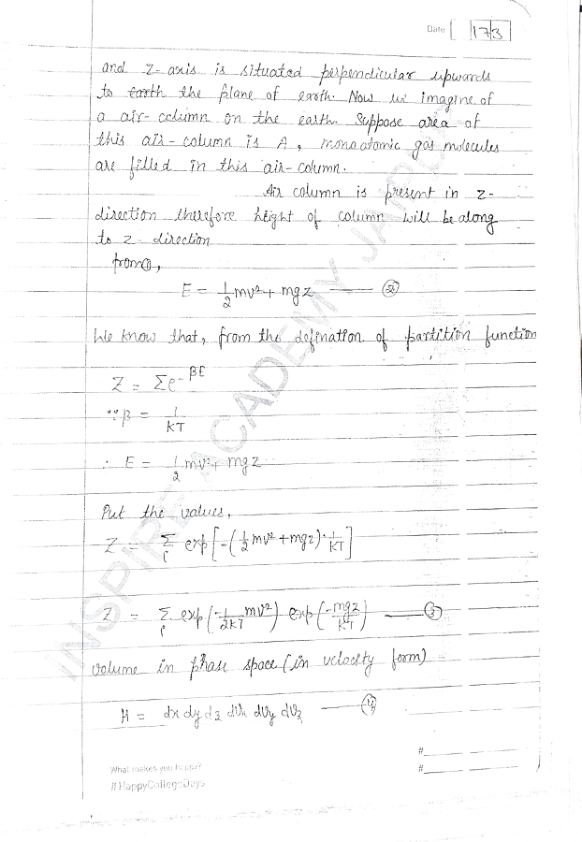 Date 173
and Z-axis is situated perpendicular upwards
to earth the plane of earth. Now we imagine of
a air-column on the earth. Suppose area of
this air-column is A, monoatomic gas molecules
are filled in this air-column.
Air column is present in z-
direction therefore height of column will be along
to z direction
from ①,
E = 1/2 mv² + mgz —— ②
We know that, from the defination of partition function
Z = Σe^-βE
∵ β = 1/KT
∴ E = 1/2 mv² + mgz
Put the values,
Z = Σ_i exp[-(1/2 mv² + mgz)·1/KT]
Z = Σ_i exp(-1/2KT mv²) exp(-mgz/KT) —— ③
volume in phase space (in velocity form)
H = dx dy dz dVx dVy dVz —— ④
#
What makes you
#
#HappyCollegeDays
INSPIRE ACADEMY JAIPUR